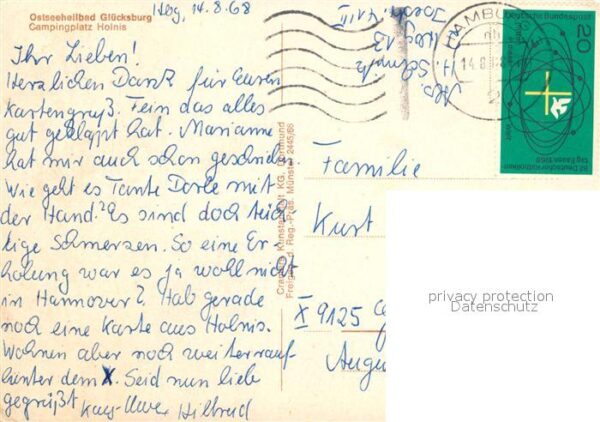 Ostseeheilbad Glücksburg
Campingplatz Holnis
Hbg, 14.8.68
Ihr Lieben!
Herzlichen Dank für Euren
Kartengruß. Fein das alles
gut geklappt hat. Marianne
hat mir auch schon geschrieb.
Wie geht es Tante Dorle mit
der Hand? Es sind doch
lige Schmerzen. So eine Er-
holung war es ja wohl nicht
in Hannover? Hab gerade
noch eine Karte aus Holnis.
Wohnen aber noch weiter rauf
hinter dem X. Seid nun lieb
gegrüßt Kay-Uwe
Cramers Kunstanstalt KG, Dortmund
Freigabe d. Reg.-Präs. Münster 2445/66
Abs.
H. Schmitz
HAMBURG
14.8.
20
Deutsche Bundespost
82. Deutscher Katholikentag Essen 1968
Familie
Kurt
X 9125
privacy protection
Datenschutz